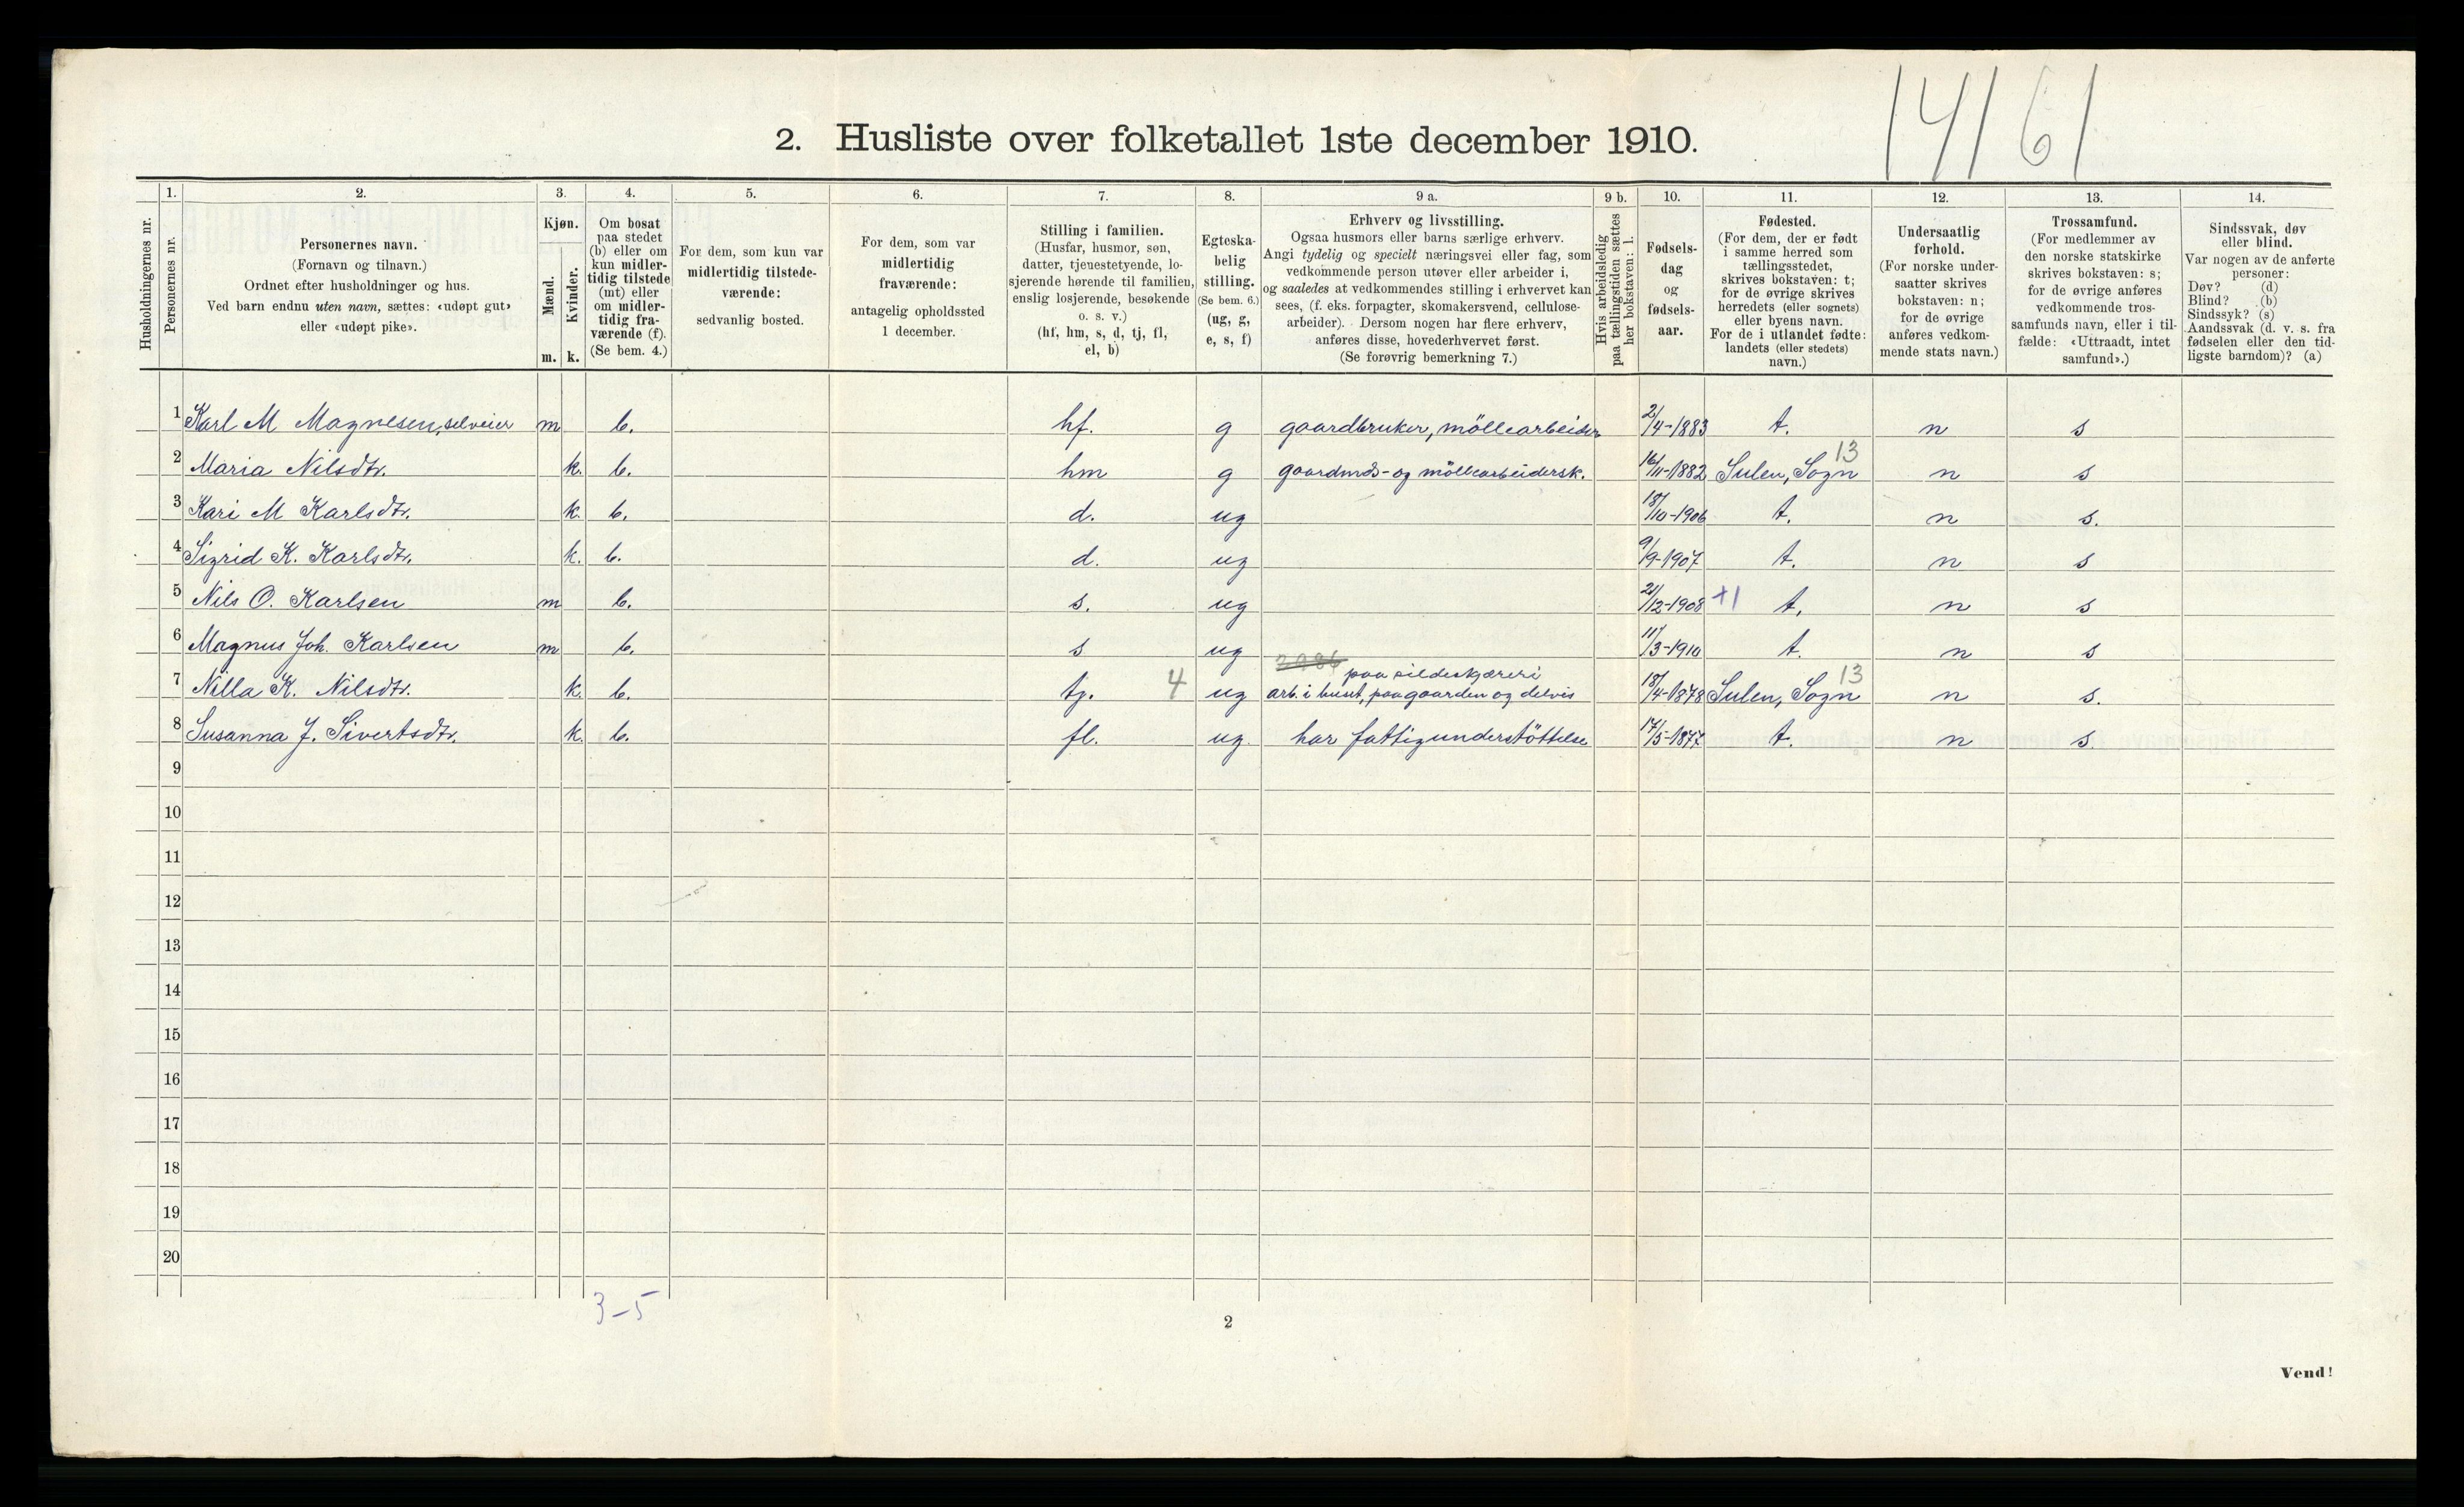 14161
2. Husliste over folketallet 1ste december 1910.
Husholdningernes nr.
1.
Personernes nr.
2.
Personernes navn.
(Fornavn og tilnavn.)
Ordnet efter husholdninger og hus.
Ved barn endnu uten navn, sættes: «udøpt gut»
eller «udøpt pike».
3.
Kjøn.
Mænd.
Kvinder.
m. k.
4.
Om bosat
paa stedet
(b) eller om
kun midler-
tidig tilstede
(mt) eller
om midler-
tidig fra-
værende (f).
(Se bem. 4.)
5.
For dem, som kun var
midlertidig tilstede-
værende:
sedvanlig bosted.
6.
For dem, som var
midlertidig
fraværende:
antagelig opholdssted
1 december.
7.
Stilling i familien.
(Husfar, husmor, søn,
datter, tjenestetyende, lo-
sjerende hørende til familien,
enslig losjerende, besøkende
o. s. v.)
(hf, hm, s, d, tj, fl,
el, b)
8.
Egteska-
belig
stilling.
(Se bem. 6.)
(ug, g,
e, s, f)
9 a.
Erhverv og livsstilling.
Ogsaa husmors eller barns særlige erhverv.
Angi tydelig og specielt næringsvei eller fag, som
vedkommende person utøver eller arbeider i,
og saaledes at vedkommendes stilling i erhvervet kan
sees, (f. eks. forpagter, skomakersvend, cellulose-
arbeider). Dersom nogen har flere erhverv,
anføres disse, hovederhvervet først.
(Se forøvrig bemerkning 7.)
9 b.
Hvis arbeidsledig
paa tællingstiden sættes
her bokstaven: l.
10.
Fødsels-
dag
og
fødsels-
aar.
11.
Fødested.
(For dem, der er født
i samme herred som
tællingsstedet,
skrives bokstaven: t;
for de øvrige skrives
herredets (eller sognets)
eller byens navn.
For de i utlandet fødte:
landets (eller stedets)
navn.)
12.
Undersaatlig
forhold.
(For norske under-
saatter skrives
bokstaven: n;
for de øvrige
anføres vedkom-
mende stats navn.)
13.
Trossamfund.
(For medlemmer av
den norske statskirke
skrives bokstaven: s;
for de øvrige anføres
vedkommende tros-
samfunds navn, eller i til-
fælde: «Uttraadt, intet
samfund».)
14.
Sindssvak, døv
eller blind.
Var nogen av de anførte
personer:
Døv? (d)
Blind? (b)
Sindssyk? (s)
Aandssvak (d. v. s. fra
fødselen eller den tid-
ligste barndom)? (a)
1 Karl M Magnesen, selveier m b. hf. g gaardbruker, möllearbeider 2/4-1883 t. n s
13
2 Maria Nilsdtr. k. b. hm g gaardmds- og möllearbeidersk. 16/11-1882 Sulen, Sogn n s
3 Kari M Karlsdtr. k. b. d. ug 18/10-1906 t. n s.
4 Sigrid K. Karlsdtr. k. b. d. ug 9/9-1907 t. n s
5 Nils O. Karlsen m b. s. ug 21/12-1908 +1 t. n s
6 Magnus Joh. Karlsen m b. s ug 11/3-1910 t. n s
paa sildeskjæreri 13
7 Nilla K. Nilsdtr. k. b. tj. 4 ug arb. i huset, paa gaarden og delvis 18/4-1878 Sulen, Sogn n s.
8 Susanna J. Sivertsdtr. k. b. fl. ug. har fattigunderstöttelse 17/5-1877 t. n s
9
10
11
12
13
14
15
16
17
18
19
20
3-5
2
Vend!